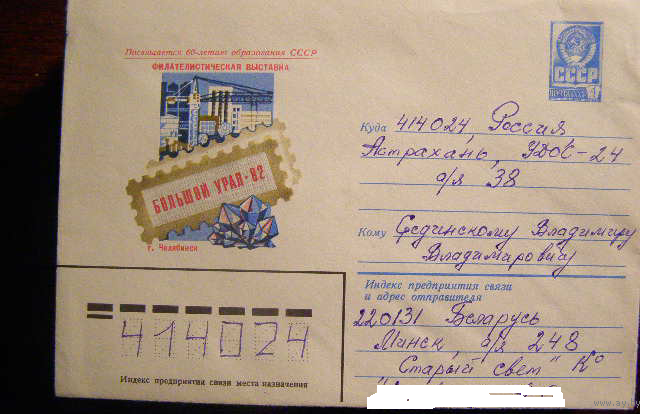 Посвящается 60-летию образования СССР
ФИЛАТЕЛИСТИЧЕСКАЯ ВЫСТАВКА
БОЛЬШОЙ УРАЛ-82
г. Челябинск
СССР
Куда 414024, Россия
Астрахань, УДОС-24
а/я 38
Кому Срединскому Владимиру
Владимировичу
Индекс предприятия связи
и адрес отправителя
220131 Беларусь
Минск, а/я 248
"Старый свет" Ко
414024
Индекс предприятия связи места назначения